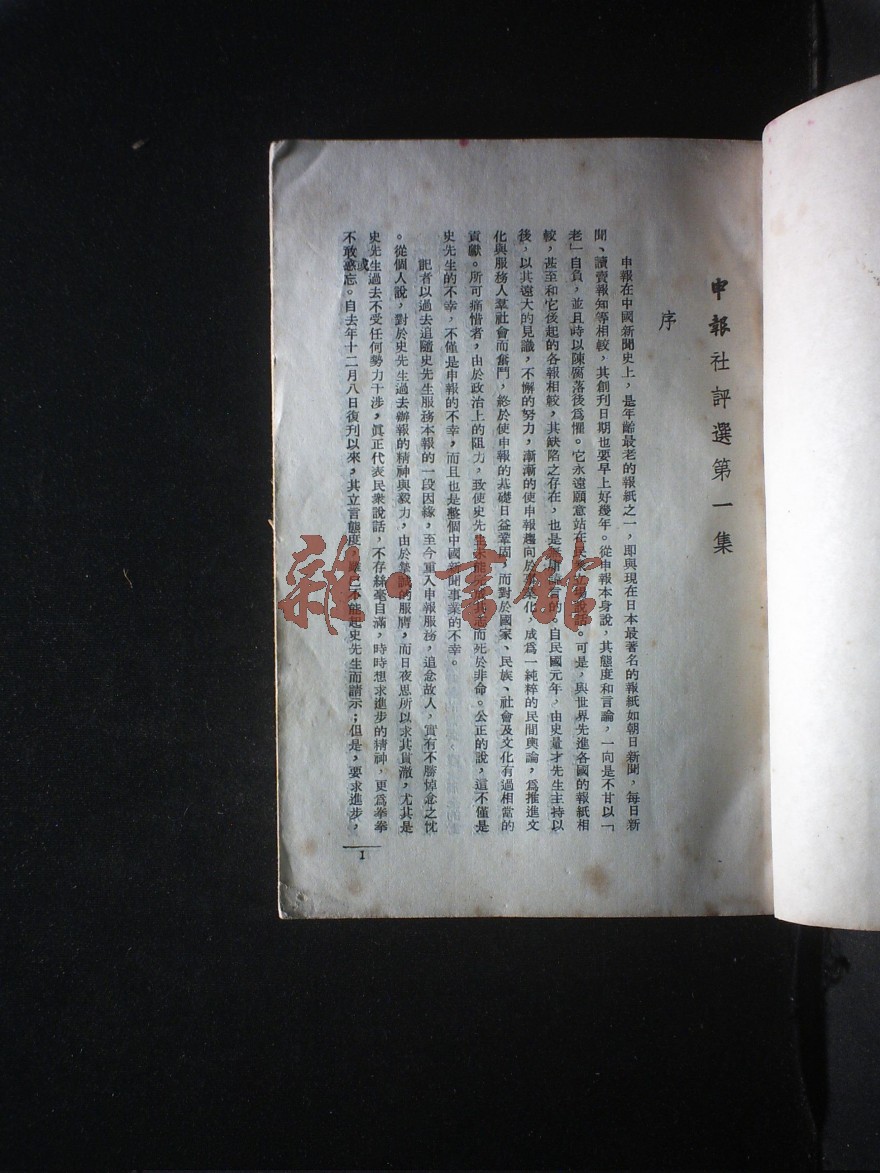 申報社評選第一集
序
申報在中國新聞史上，是年齡最老的報紙之一，即與現在日本最著名的報紙如朝日新聞，每日新
聞、讀賣報知等相較，其創刊日期也要早上好幾年。從申報本身說，其態度和言論，一向是不甘以「
老」自負，並且時以陳腐落後爲懼。它永遠願意站在民衆立場說話。可是，與世界先進各國的報紙相
較，甚至和它後起的各報相較，其缺陷之存在，也是無庸諱言的。自民國元年，由史量才先生主持以
後，以其遠大的見識，不懈的努力，漸漸的使申報趨向於事業化，成爲一純粹的民間輿論，爲推進文
化與服務人羣社會而奮鬥，終於使申報的基礎日益鞏固，而對於國家、民族、社會及文化有過相當的
貢獻。所可痛惜者，由於政治上的阻力，致使史先生未能其志而死於非命。公正的說，這不僅是
史先生的不幸，不僅是申報的不幸，而且也是整個中國新聞事業的不幸。
記者以過去追隨史先生服務本報的一段因緣，至今重入申報服務，追念故人，實有不勝悼念之忱
。從個人說，對於史先生過去辦報的精神與毅力，由於摯誠的服膺，而日夜思所以求其貫澈，尤其是
史先生過去不受任何勢力干涉，眞正代表民衆說話，不存絲毫自滿，時時想求進步的精神，更爲拳拳
不敢或忘。自去年十二月八日復刊以來，其立言態度，雖已不能起史先生而請示；但是，要求進步，
1
雜·書館